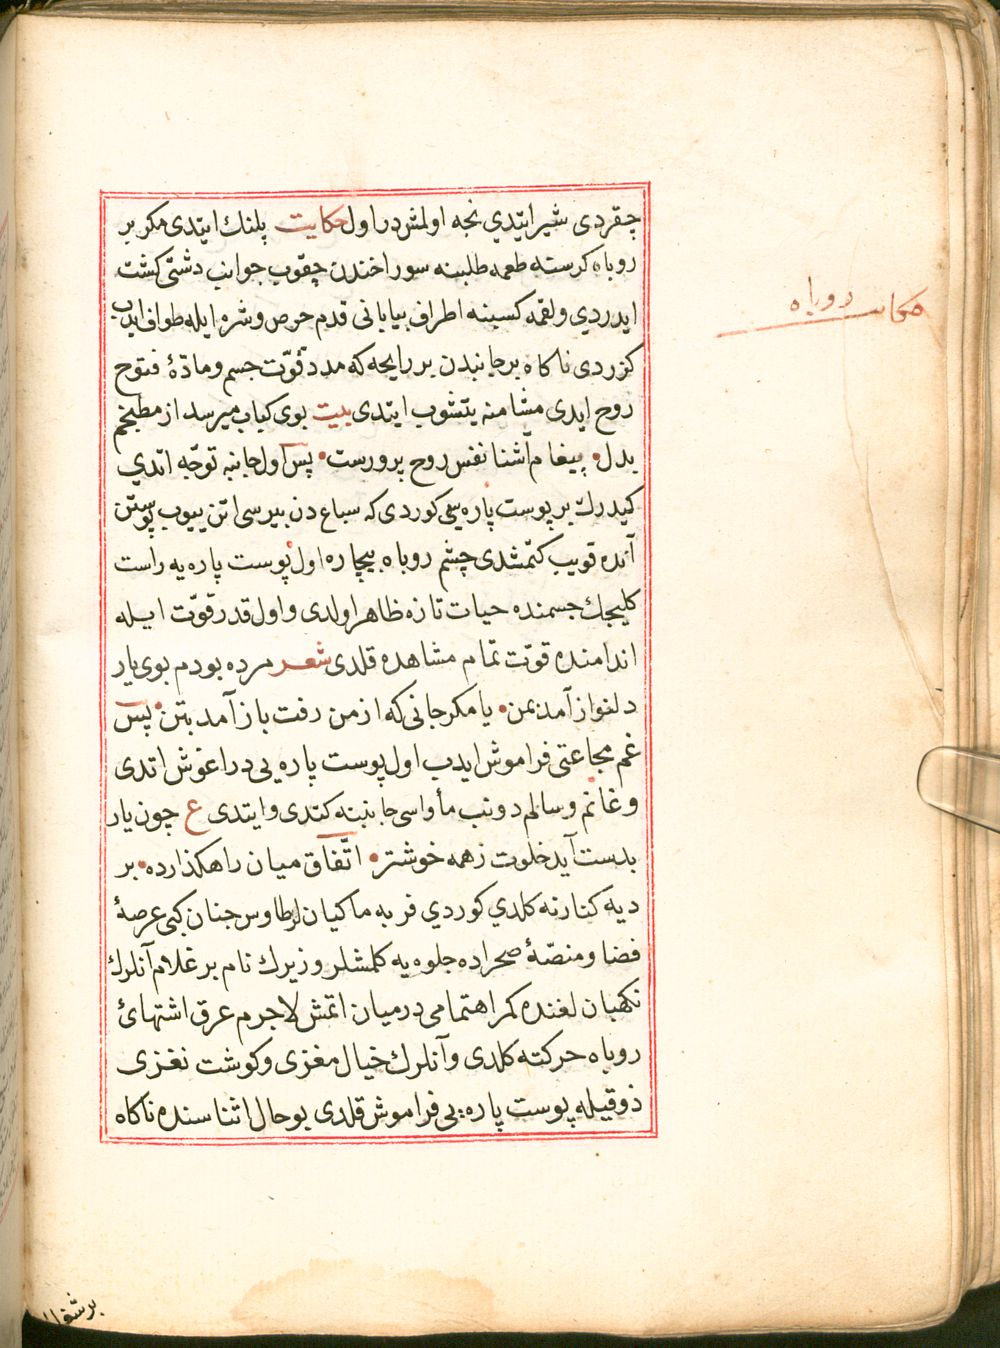 چقردی شیر ایتدي نجه اولمش در اول حکایت پلنك ایتدی مکر بر
روباه کرسته طعمه طلبنه سوراخندن چقوب جوانب دشتی کشت
ایدردي ولقمه کسبنه اطراف بیابانی قدم حرص وشره ایله طواف ایدب
کزردی ناکاه بر جانبدن بر رایحه که مدد قوّت جسم ومادّهٔ فتوح
روح ایدی مشامنه یتشوب ایتدی بیت بوی کباب میرسد از مطبخم
بدل • پیغام آشنا نفس روح پرورست • پس اول جانبه توجّه اتدي
کیدرك بر پوست پاره سی کوردی که سباع دن بیرسی اتن ییوب پوستن
آنده قویب کتمشدی چشم روباه بیچاره اول پوست پاره یه راست
کلیجك جسمنده حیات تازه ظاهر اولدی و اول قدر قوّت ایله
اندامنده قوت تمام مشاهده قلدی شعر مرده بودم بوی یار
دلنواز آمد بمن • یا مکر جانی که از من رفت باز آمد بتن • پس
غم مجاعتی فراموش ایدب اول پوست پاره یی در اغوش اتدی
وغانم وسالم دونب مأواسی جانبنه کتدی و ایتدی ع چون یار
بدست آید خلوت زهمه خوشتر • اتّفاق میان راهکذارده • بر
دیه کنارنه کلدي کوردي فربه ماکیان لر طاوس جنان کبی عرصهٔ
فضا ومنصّهٔ صحراده جلوه یه کلمشلر وزیرك نام بر غلام آنلرك
نکهبان لغنده کمر اهتمامی درمیان اتمش لاجرم عرق اشتهائ
روباه حرکته کلدی و آنلرك خیال مغزی وکوشت نغزی
ذوقیله پوست پاره یی فراموش قلدی بو حال اثناسنده ناکاه
حکایت روباه